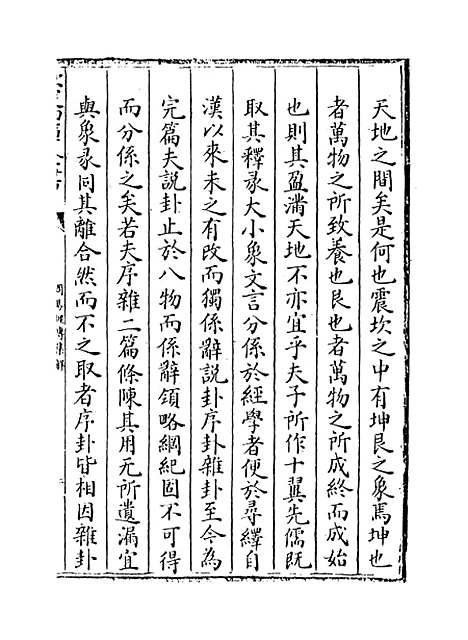 天地之間矣是何也震坎之中有坤艮之象焉坤也
者萬物之所致養也艮也者萬物之所成終而成始
也則其盈滿天地不亦宜乎夫子所作十翼先儒既
取其釋彖大小象文言分係於經學者便於尋繹自
漢以來未之有改而獨係辭說卦序卦雜卦至今為
完篇夫說卦止於八物而係辭領略綱紀固不可得
而分係之矣若夫序雜二篇條陳其用元所遺漏宜
與象彖同其離合然而不之取者序卦皆相因雜卦